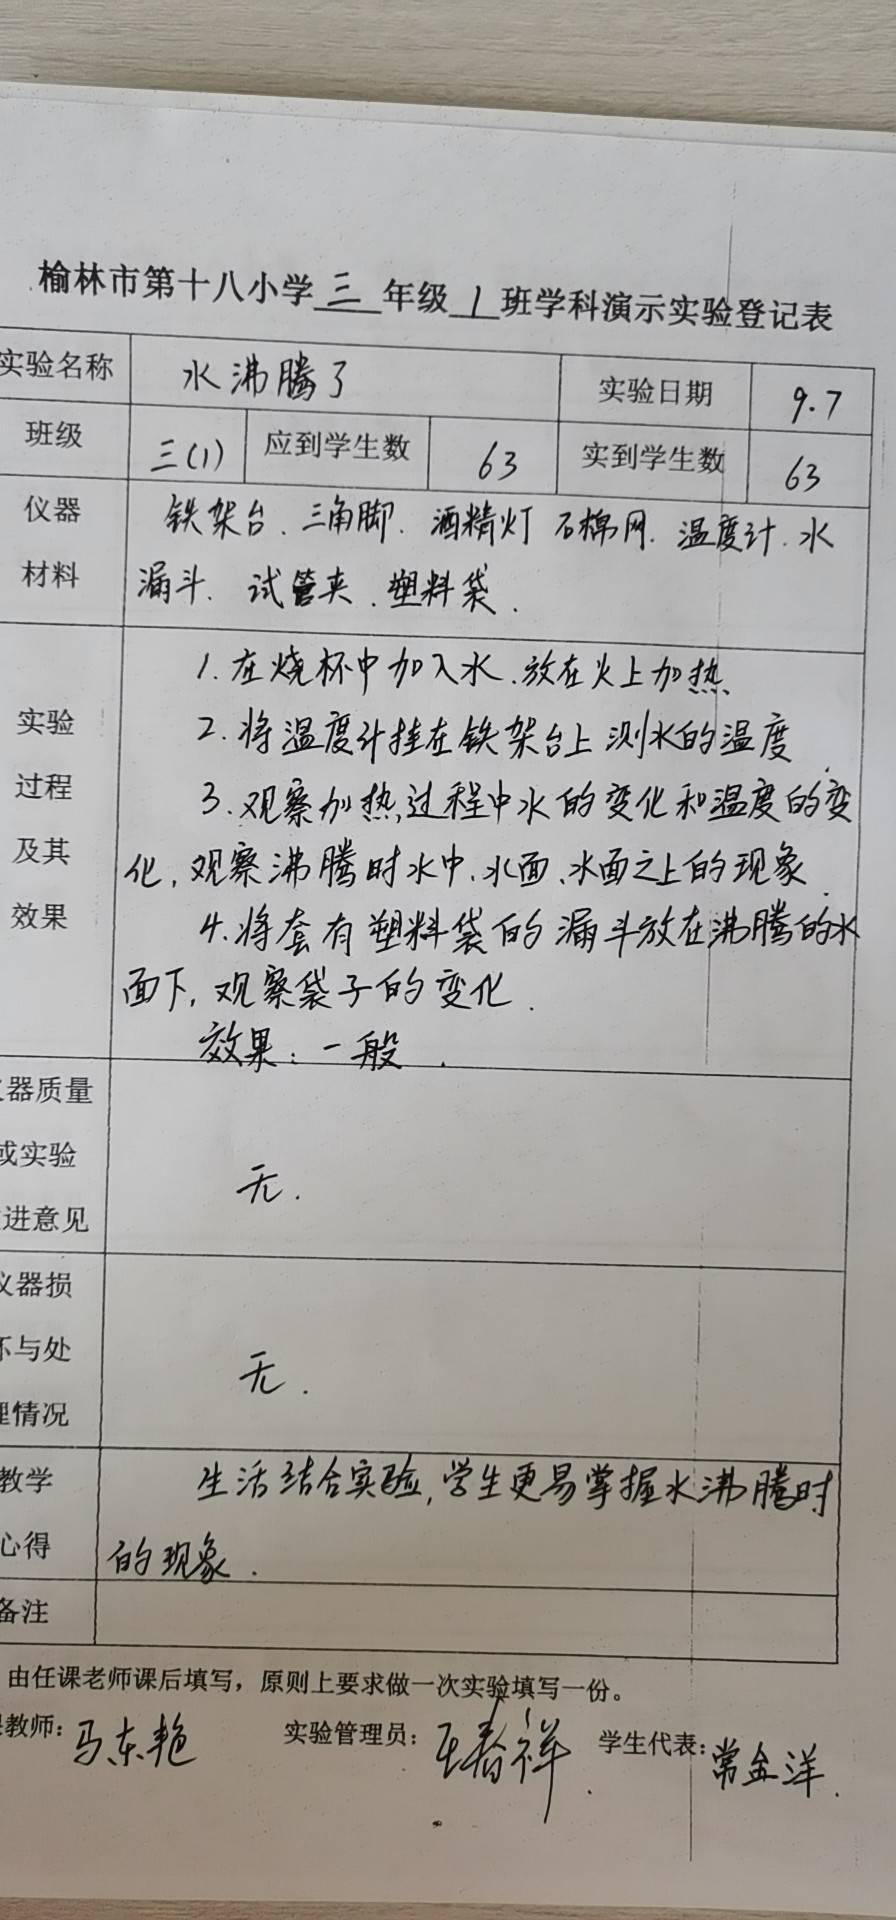 榆林市第十八小学三年级1班学科演示实验登记表
实验名称 水沸腾了 实验日期 9.7
班级 三(1) 应到学生数 63 实到学生数 63
仪器 铁架台、三角脚、酒精灯 石棉网、温度计、水
材料 漏斗、试管夹、塑料袋.
1.在烧杯中加入水,放在火上加热
实验 2.将温度计挂在铁架台上测水的温度.
过程 3.观察加热过程中水的变化和温度的变
及其 化,观察沸腾时水中、水面、水面之上的现象.
效果 4.将套有塑料袋的漏斗放在沸腾的水
面下,观察袋子的变化.
效果:一般.
器质量
或实验 无.
进意见
仪器损
坏与处 无.
理情况
教学 生活结合实验,学生更易掌握水沸腾时
心得 的现象.
备注
由任课老师课后填写,原则上要求做一次实验填写一份。
教师:马东艳 实验管理员:王春祥 学生代表:常金洋.